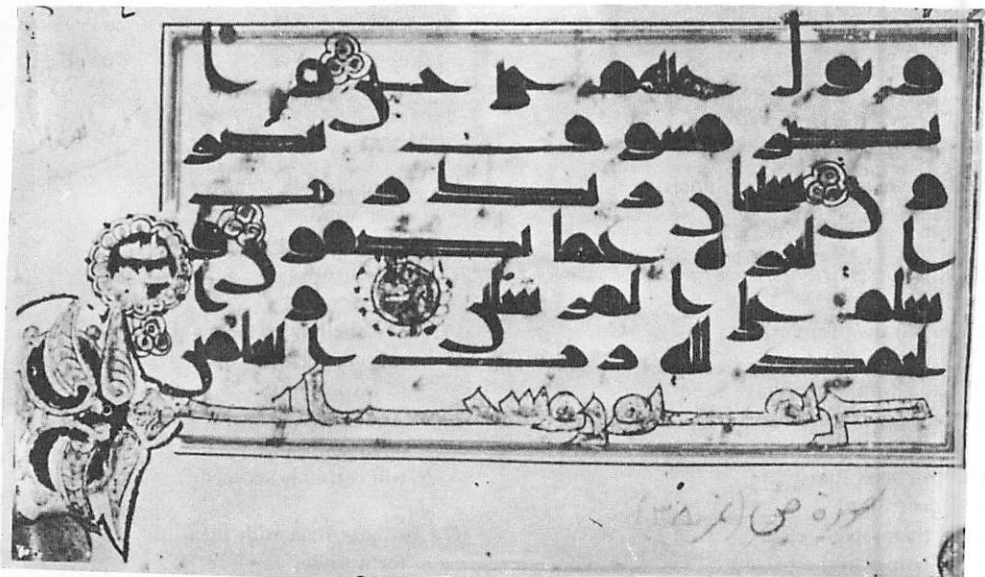 و تول عنهم حتى حين و ا
بصر فسوف يبصرو
ن سبحن ربك رب
ا لعزة عما يصفون و
سلم على ا لمرسلين و ا
لحمد لله رب ا لعلمين
سورة ص